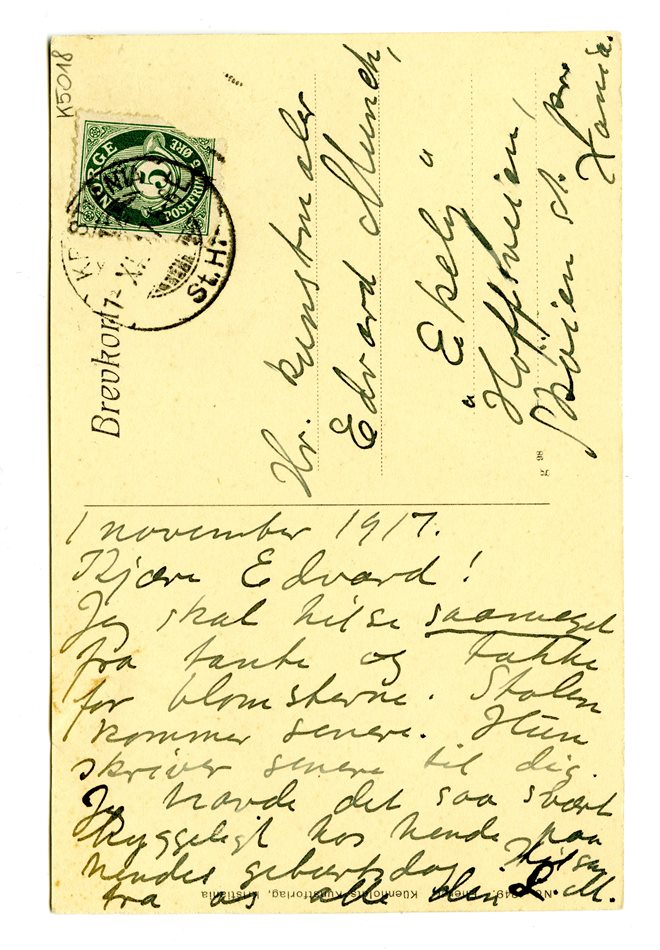 K5018
NORGE
POSTFRIM 5 ØRE
5
KRISTIANIA
XI
St. H.
Brevkort
Hr. Kunstmaler
Edvard Munch,
"Ekely"
Hoffsveien,
Skøien st. pr
Xania.
1 november 1917.
Kjære Edvard!
Jeg skal hilse saameget
fra tante og takke
for blomsterne. Stolen
kommer senere. Hun
skriver senere til dig.
Jeg havde det saa svært
hyggeligt hos hende paa
hendes gebærtsdag. Hilsen
fra os alle Din L. M.
Küenholdts Kunstforlag, Kristiania